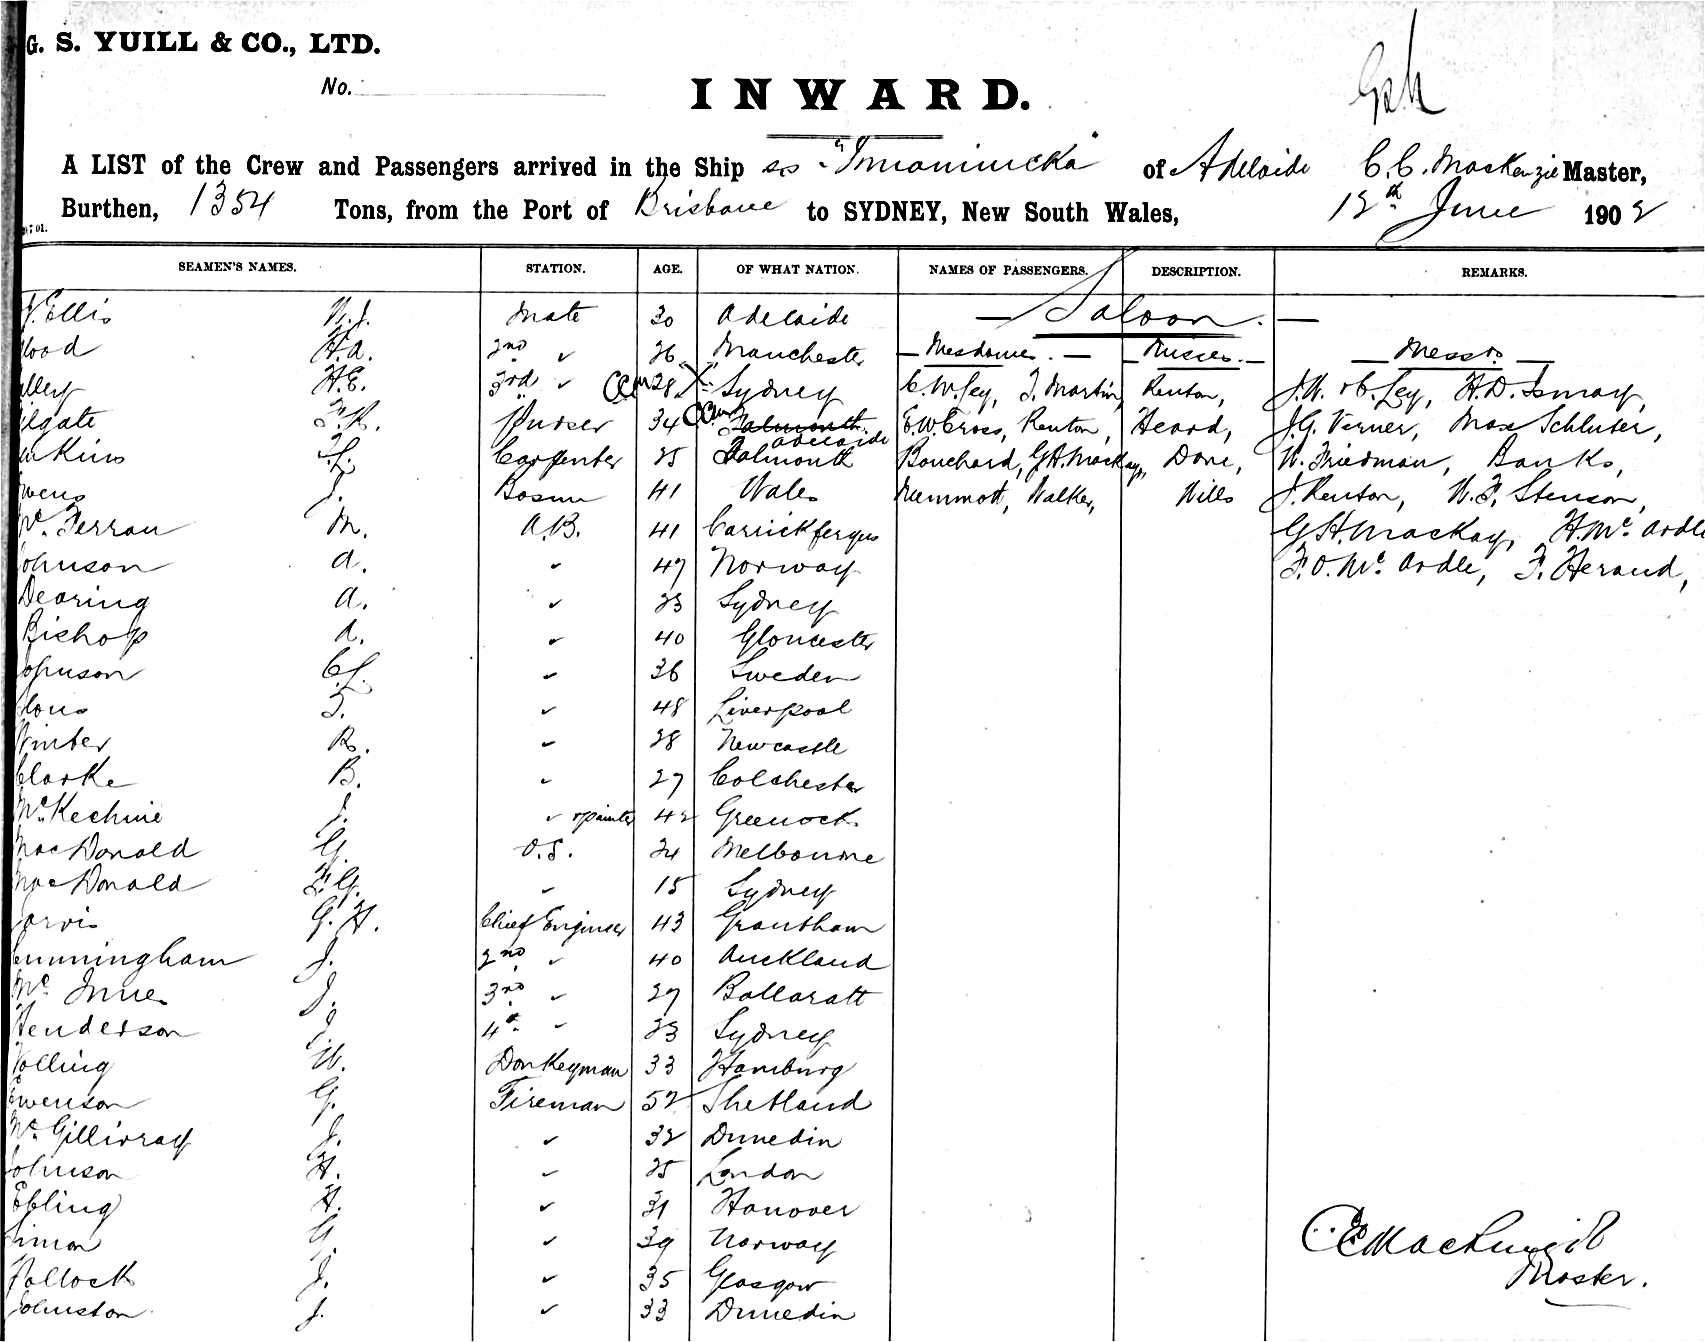 G. S. YUILL & CO., LTD.
No.
INWARD.
A LIST of the Crew and Passengers arrived in the Ship ss "Innamincka" of Adelaide C.C. MacKenzie Master,
Burthen, 1354 Tons, from the Port of Brisbane to SYDNEY, New South Wales, 12th June 1902
SEAMEN'S NAMES. STATION. AGE. OF WHAT NATION. NAMES OF PASSENGERS. DESCRIPTION. REMARKS.
Ellis Mate 30 Adelaide — Saloon. —
Wood H.A. 2nd " 26 Manchester — Mesdames. — — Misses. — — Messrs. —
H.E. 3rd " 28 Sydney C.W. Ley, T. Martin, Renton, J.W. & C. Ley, H.D. Ismay,
F.R. Purser 34 Falmouth Adelaide E.W. Cross, Renton, Heard, J.G. Verner, Max Schluter,
Carpenter 25 Falmouth Bouchard, G.H. Mackay, Dore, W. Friedman, Banks,
Owens J. Bosun 41 Wales Nummott, Walker, Wills J. Renton, W.F. Stenson,
Mc. Ferran M. A.B. 41 Carrickfergus G.H. Mackay, H. Mc. Ardle
Johnson A. " 47 Norway F.O. Mc. Ardle, F. Heraud,
Dearing A. " 23 Sydney
Bishop A. " 40 Gloucester
Johnson C. " 36 Sweden
T. " 48 Liverpool
Winter R. " 28 Newcastle
Clarke B. " 27 Colchester
McKechnie J. " & painter 42 Greenock
MacDonald G. O.S. 21 Melbourne
MacDonald F.G. " 15 Sydney
Jarvis G.H. Chief Engineer 43 Grantham
Cunningham J. 2nd " 40 Auckland
Mc. Innes J. 3rd " 27 Ballaratt
Henderson J. 4th " 23 Sydney
Nolling W. Donkeyman 33 Hamburg
Swenson G. Fireman 52 Shetland
Mc. Gillivray J. " 32 Dunedin
Johnson H. " 25 London
Ebling H. " 31 Hanover
Simon G. " 39 Norway
Pollock J. " 35 Glasgow
Johnston J. " 33 Dunedin
Master.